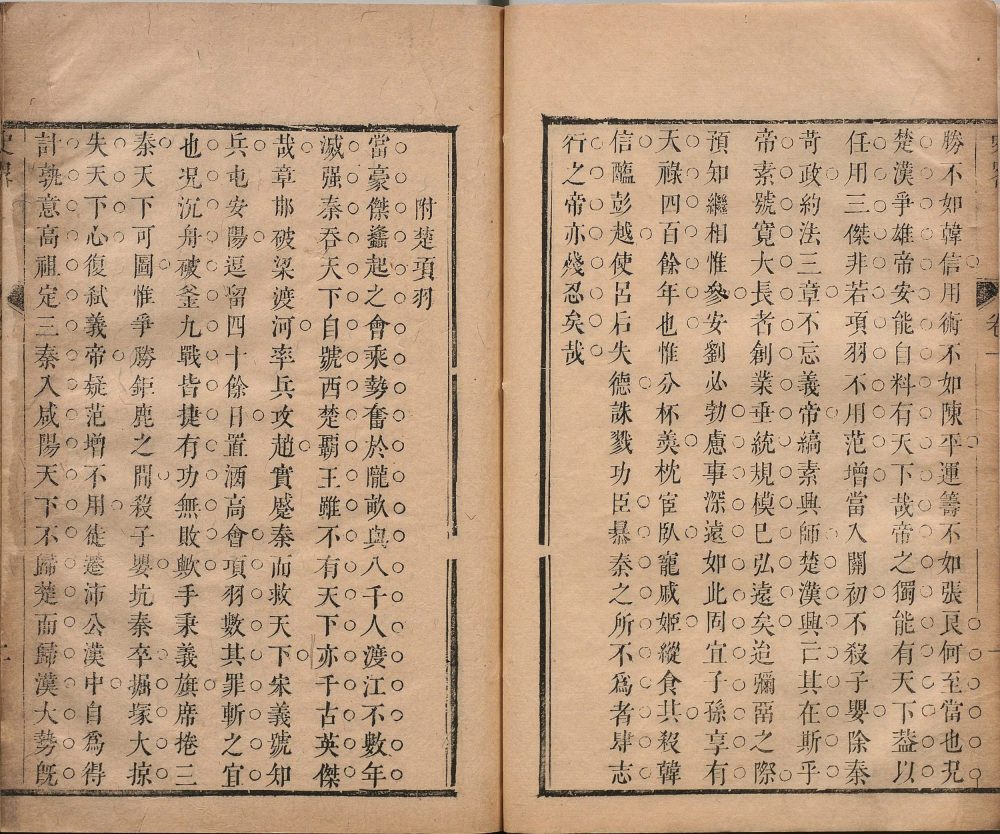 勝不如韓信用術不如陳平運籌不如張良何至當也况
楚漢爭雄帝安能自料有天下哉帝之獨能有天下葢以
任用三傑非若項羽不用范增當入關初不殺子嬰除秦
苛政約法三章不忘義帝縞素興師楚漢興亡其在斯乎
帝素號寛大長者創業垂統規模已弘遠矣迨彌留之際
預知繼相惟參安劉必勃慮事深遠如此固宜子孫享有
天祿四百餘年也惟分杯羮枕宦臥寵戚姬縱食其殺韓
信醢彭越使呂后失德誅戮功臣暴秦之所不爲者肆志
行之帝亦殘忍矣哉
附楚項羽
當豪傑蠭起之會乘勢奮於隴畝與八千人渡江不數年
滅强秦吞天下自號西楚霸王雖不有天下亦千古英傑
哉章邯破梁渡河率兵攻趙實蹙秦而救天下宋義號知
兵屯安陽逗留四十餘日置酒高會項羽數其罪斬之宜
也况沉舟破釜九戰皆捷有功無敗歟手秉義旗席捲三
秦天下可圖惟爭勝鉅鹿之間殺子嬰坑秦卒掘塚大掠
失天下心復弑義帝疑范增不用徒遷沛公漢中自爲得
計孰意高祖定三秦入咸陽天下不歸楚而歸漢大勢旣